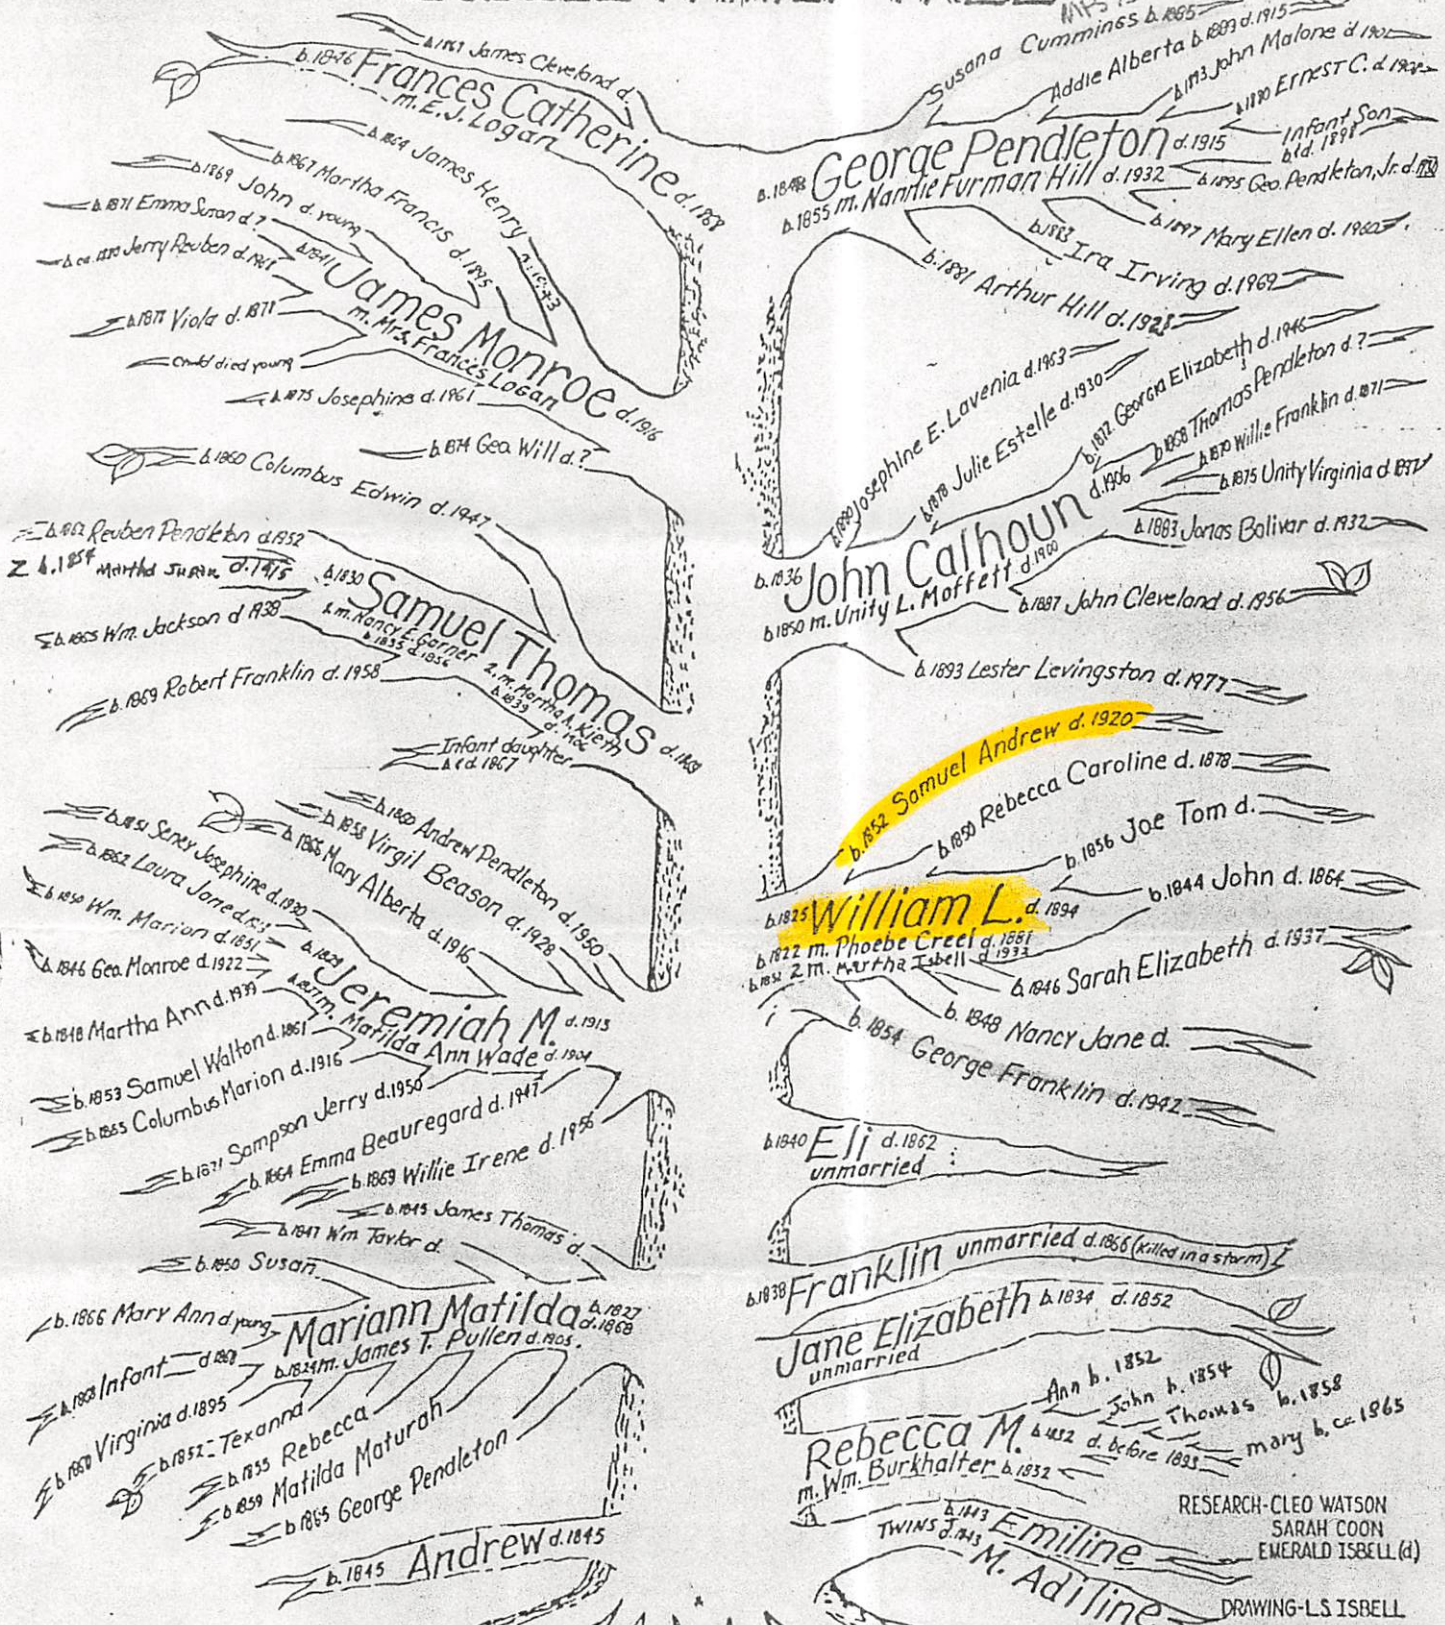 b.1867 James Cleveland d.
b.1846 Frances Catherine d. 1868
m. E.J. Logan
b.1864 James Henry
b.1867 Martha Francis d. 1895
b.1869 John d. young
b.1871 Emma Susan d.?
b.ca. Jerry Reuben
b.1841 James Monroe d.1916
m. Mrs. Frances Logan
Viola d. 1871
child died young
b.1875 Josephine d. 1961
b.1874 Geo. Will d.?
b.1860 Columbus Edwin d. 1947
Reuben Pendleton d.1952
2 b.1854 Martha Susan d.1915
b.1830 Samuel Thomas
1. m. Nancy E. Garner 2. m. Martha A. Kieth
b.1835 d.1856 b.1839
Wm. Jackson d 1938
b.1869 Robert Franklin d. 1958
Infant daughter
b&d. 1867
Andrew Pendleton d.1950
b.1858 Virgil Beason d. 1928
Mary Alberta d. 1916
b.1851 Seney Josephine d.1930
b.1862 Laura Jane
Wm. Marion d.1851
b.1846 Geo. Monroe d. 1922
b.1848 Martha Ann d. 1939
Jeremiah M. d. 1913
m. Matilda Ann Wade d. 1904
b.1853 Samuel Walton d. 1861
Columbus Marion d. 1916
b.1871 Sampson Jerry d.1950
b.1864 Emma Beauregard d. 1947
b.1869 Willie Irene d. 1956
James Thomas d.
b.1847 Wm Taylor d.
b.1850 Susan
b.1866 Mary Ann d. young
Mariann Matilda b.1827
d.1868
m. James T. Pullen d.1905.
Infant
Virginia d. 1895
b.1852- Texanna
b.1855 Rebecca
b.1859 Matilda Maturah
b.1865 George Pendleton
b.1845 Andrew d. 1845
Susana Cummings b.1885
Addie Alberta b.1889 d.1915
John Malone
Ernest C.
Infant Son
b&d. 1898
b.1895 Geo. Pendleton, Jr.
George Pendleton d. 1915
b.1855 m. Nannie Furman Hill d. 1932
b.1897 Mary Ellen d. 1960
b.1883 Ira Irving d.1969
b.1881 Arthur Hill
b.1880 Josephine E. Lavenia d.1963
b.1878 Julie Estelle d.1930
b.1872 Georgia Elizabeth d. 1946
b.1868 Thomas Pendleton d.?
b.1870 Willie Franklin d.1871
b.1875 Unity Virginia
b.1836 John Calhoun d.1906
b.1850 m. Unity L. Moffett d.1900
b.1883 Jonas Bolivar d. 1932
b.1887 John Cleveland d. 1956
b.1893 Lester Levingston d. 1977
b.1852 Samuel Andrew d. 1920
b.1850 Rebecca Caroline d. 1878
b. 1856 Joe Tom d.
b.1844 John d. 1864
b.1825 William L. d. 1894
b.1822 m. Phoebe Creel d. 1881
2 m. Martha Isbell d 1933
b.1846 Sarah Elizabeth d. 1937
b. 1848 Nancy Jane d.
b. 1854 George Franklin d. 1942
b.1840 Eli d. 1862
unmarried
b.1838 Franklin unmarried d.1866 (killed in a storm)
Jane Elizabeth b.1834 d.1852
unmarried
Ann b. 1852
John b. 1854
Thomas b. 1858
mary b. ca 1865
Rebecca M. b.1832 d. before 1893
m. Wm. Burkhalter b.1832
TWINS
b.1843 Emiline
d.1843 M. Adiline
RESEARCH-CLEO WATSON
SARAH COON
EMERALD ISBELL (d)
DRAWING-L.S. ISBELL